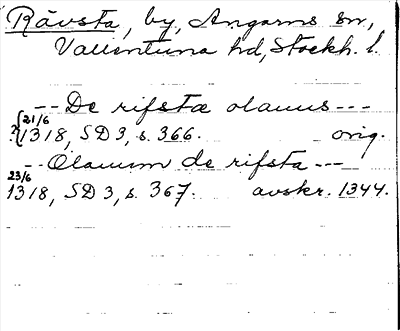 Rävsta, by, Angarns sn,
Vallentuna hd, Stockh. l.
-- De rifstæ olauus ---
?{21/6 1318, SD 3, s. 366. orig.
-- Olauum de rifsta ---
23/6 1318, SD 3, s. 367. avskr. 1344.